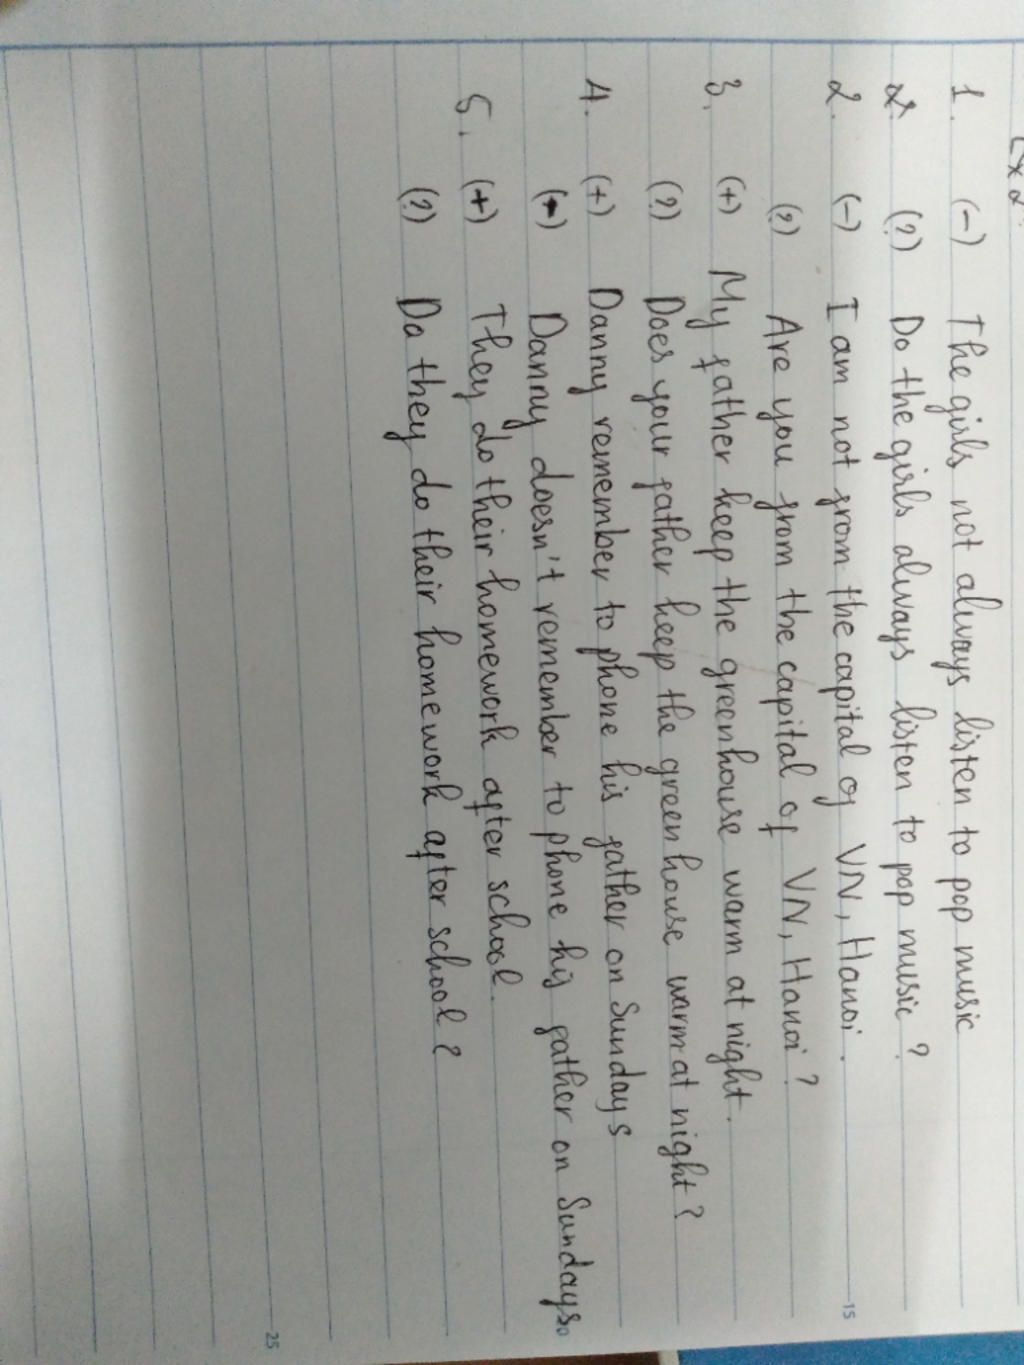 Ex2:
1. (-) The girls not always listen to pop music
(?) Do the girls always listen to pop music?
2. (-) I am not from the capital of VN, Hanoi.
(?) Are you from the capital of VN, Hanoi?
3. (+) My father keep the greenhouse warm at night.
(?) Does your father keep the greenhouse warm at night?
4. (+) Danny remember to phone his father on Sundays
(-) Danny doesn't remember to phone his father on Sundays.
5. (+) They do their homework after school.
(?) Do they do their homework after school?
15
25